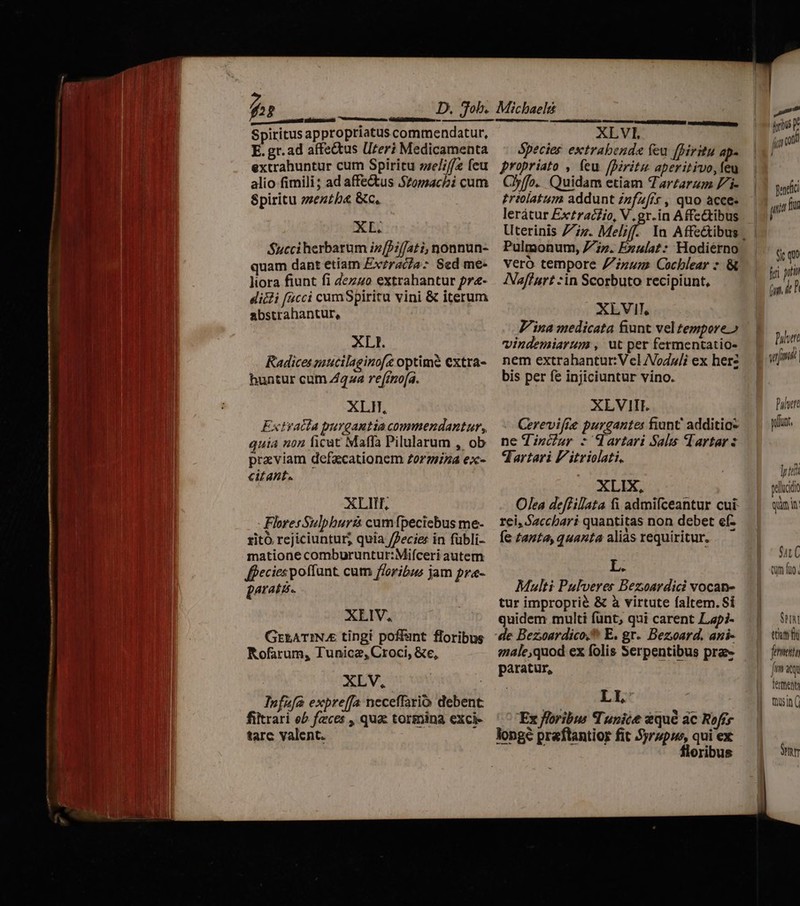 728 D. Joh. Michaelis
Spiritus appropriatus commendatur,
E. gr. ad affectus Uteri Medicamenta
extrahuntur cum Spiritu melissæ seu
alio simili; ad affectus Stomachi cum
Spiritu menthæ &c.
XL.
Succi herbarum inspissati, nonnun-
quam dant etiam Extracta: Sed me-
liora fiunt si denuo extrahantur præ-
dicti succi cum Spiritu vini & iterum
abstrahantur.
XLI.
Radices mucilaginosæ optimè extra-
huntur cum Aqua resinosa.
XLII.
Extracta purgantia commendantur,
quia non sicut Massa Pilularum, ob
præviam defæcationem tormina ex-
citant.
XLIII.
Flores Sulphuris cum speciebus me-
ritò rejiciuntur; quia species in subli-
matione comburuntur: Misceri autem
species possunt cum floribus jam præ-
paratis.
XLIV.
GELATINÆ tingi possunt floribus
Rosarum, Tunicæ, Croci, &c.
XLV.
Infusa expressa necessariò debent
filtrari ob fæces, quæ tormina exci-
tare valent.
XLVI.
Species extrahendæ seu spiritu ap-
propriato, seu spiritu aperitivo, seu
Chysso. Quidam etiam Tartarum Vi-
triolatum addunt infusis, quo acce-
leratur Extractio, V. gr. in Affectibus
Uterinis Vin. Meliss. In Affectibus
Pulmonum, Vin. Enulat: Hodierno
verò tempore Vinum Cochlear: &
Nasturt: in Scorbuto recipiunt.
XLVII.
Vina medicata fiunt vel tempore
vindemiarum, ut per fermentatio-
nem extrahantur: Vel Noduli ex her-
bis per se injiciuntur vino.
XLVIII.
Cerevisiæ purgantes fiunt additio-
ne Tinctur: Tartari Salis Tartar:
Tartari Vitriolati.
XLIX.
Olea destillata si admisceantur cui
rei, Sacchari quantitas non debet es-
se tanta, quanta aliàs requiritur.
L.
Multi Pulveres Bezoardici vocan-
tur impropriè & à virtute saltem. Si
quidem multi sunt, qui carent Lapi-
de Bezoardico. E. gr. Bezoard. ani-
male, quod ex solis Serpentibus præ-
paratur.
LI.
Ex floribus Tunicæ æquè ac Rosis
longè præstantior fit Syrupus, qui ex
floribus